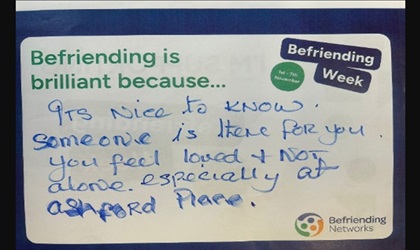 Befriending is
brilliant because...
Befriending
Week
1st - 7th
November
Its Nice to KNOW.
someone is there for you.
you feel loved + NOT
alone. especially at
ashford Place.
Befriending
Networks